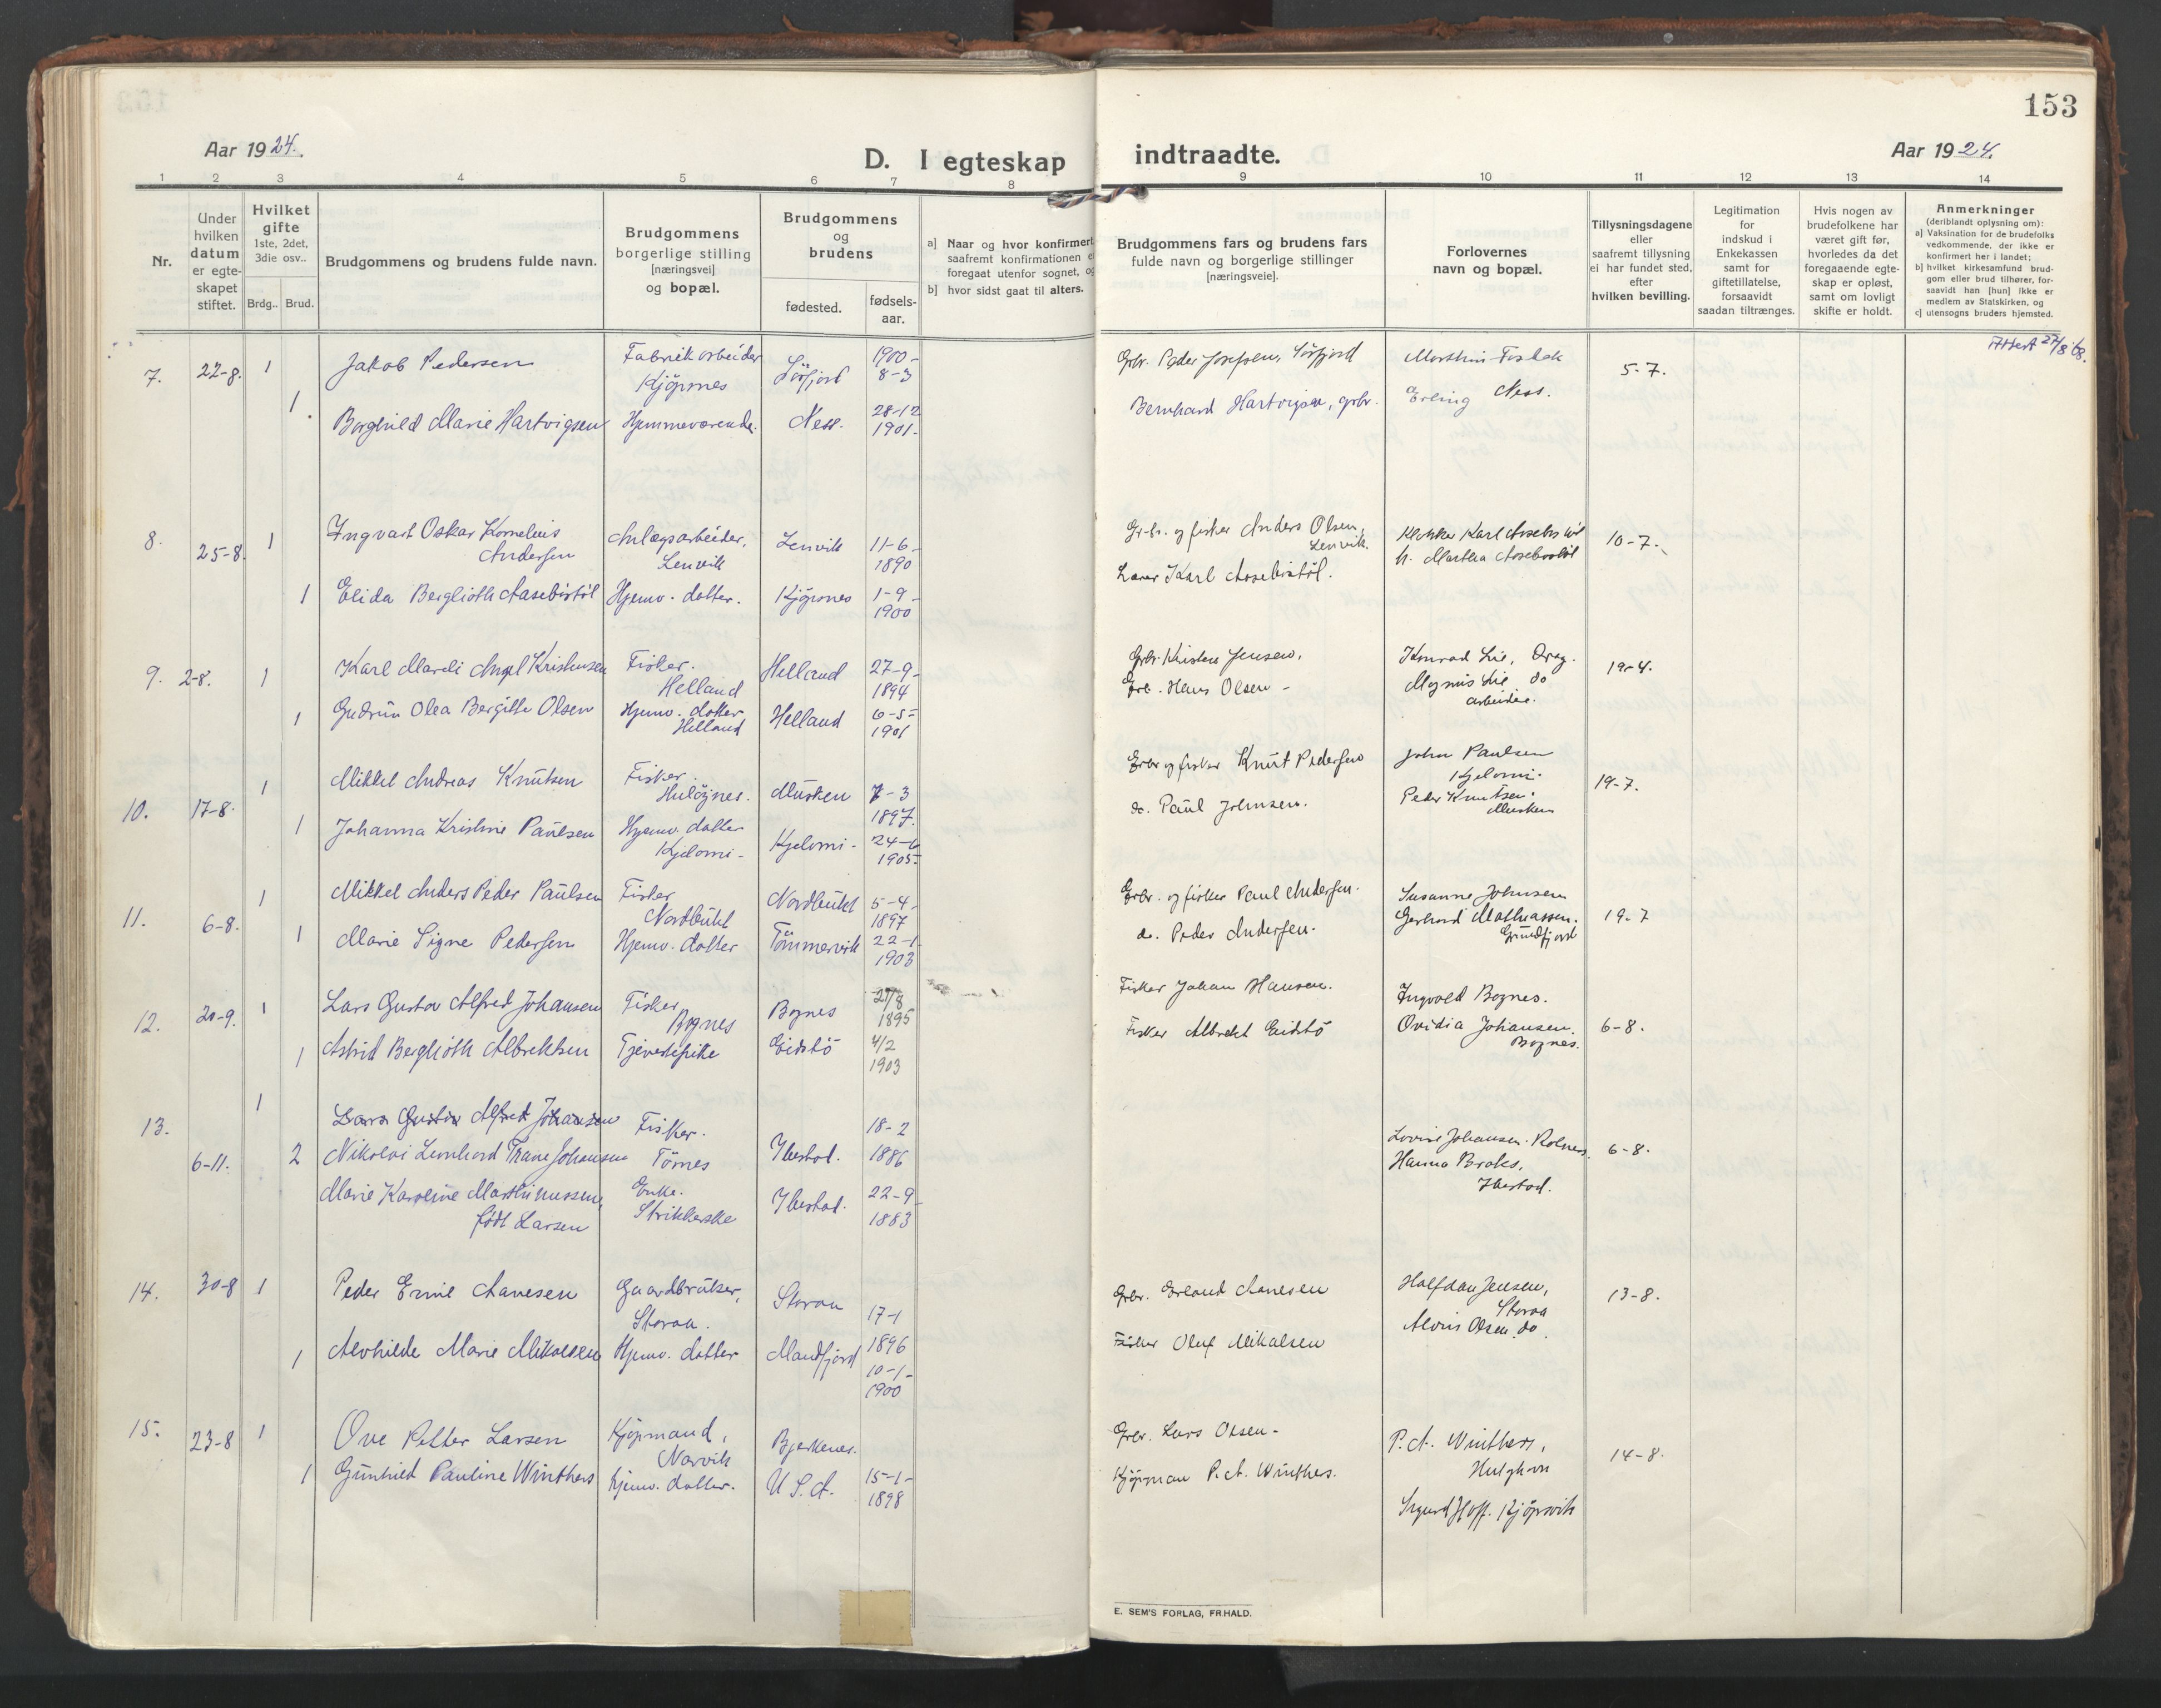 153
Aar 1924.
D. I egteskap
indtraadte.
Aar 1924.
1 2 3 4 5 6 7 8 9 10 11 12 13 14
Nr.
Under hvilken datum er egteskapet stiftet.
Hvilket gifte
1ste, 2det, 3die osv..
Brdg.. Brud.
Brudgommens og brudens fulde navn.
Brudgommens borgerlige stilling [næringsvei] og bopæl.
Brudgommens og brudens
fødested.
fødsels-aar.
a] Naar og hvor konfirmert
saafremt konfirmationen e
foregaat utenfor sognet, og
b] hvor sidst gaat til alters.
Brudgommens fars og brudens fars
fulde navn og borgerlige stillinger
[næringsveie].
Forlovernes
navn og bopæl.
Tillysningsdagene
eller
saafremt tillysning
ei har fundet sted,
efter
hvilken bevilling.
Legitimation
for
indskud i
Enkekassen
samt for
giftetillatelse,
forsaavidt
saadan tiltrænges.
Hvis nogen av
brudefolkene har
været gift før,
hvorledes da det
foregaaende egte-
skap er opløst,
samt om lovligt
skifte er holdt.
Anmerkninger
(deriblandt oplysning om):
a) Vaksination for de brudefolks
vedkommende, der ikke er
konfirmert her i landet;
b) hvilket kirkesamfund brud-
gom eller brud tilhører, for-
saavidt han [hun] ikke er
medlem av Statskirken, og
c) utensogns bruders hjemsted.
7. 22-8. 1 Jakob Pedersen Fabrikarbeider Kjöpsnes Sörfjord 1900- 8-3 Grbr. Peder Josefsen, Sörfjord 5-7. Attest 27/8 68.
1 Borghild Marie Hartvigsen Hjemmeværende. Ness. 28-12 1901- Bernhard Hartvigsen, grbr. Erling Ness.
8. 25-8. 1 Ingvart Oskar Kornelius Andersen Anlægsarbeider, Lenvik Lenvik 11-6- 1890 Gr.br. og fisker Anders Olsen, Lenvik. Klokker Karl 10-7.
1 Elida Bergliöth Aaseböstöl Hjemv. datter. Kjöpsnes 1-9- 1900 Lærer Karl Aaseböstöl. fr. Martha Aasebostöl
9. 2-8. 1 Karl Mareli Angel Kristensen Fisker. Helland Helland 27-9- 1894 Grbr. Kristen Jensen, Konrad Lie, Drag. 19-4.
1 Gudrün Olea Bergitte Olsen Hjemv. datter Helland Helland 6-5- 1901 Grb. Hans Olsen - Magnus Lie do arbeider.
10. 17-8. 1 Mikkel Andreas Knütsen Fisker. Musken 7-3 1897. Grbr og fisker Knut Pedersen John Paulsen Kjelomi. 19-7.
1 Johanna Kristine Paülsen Hjemv. datter Kjelomi- Kjelomi- 24-6 1905- do. Paul Johnsen. Peder Knutsen. Musken
11. 6-8. 1 Mikkel Anders Peder Paülsen Fisker Nordbükt Nordbükt 5-4- 1897 Grbr. og fisker Paul Andersen. Susanne Johnsen 19-7
1 Marie Signe Pedersen Hjemv. datter Tömmervik 22-1 1903 do. Peder Andersen. Gerhard Mathiassen. Grundfjord
12. 20-9. 1 Lars Gustav Alfred Johansen Fisker Bognes Bognes 27/8 1895 Fisker Johan Hansen. Ingvald Bognes.
1 Astrid Bergliöth Albrektsen Tjenestepike Eidstö 4/2 1903 Fisker Albrekt Eidstö Ovidia Johansen. Bognes. 6-8.
1 Lars Gustav Alfred Johansen
13. 6-11. 2 Nikolai Leonhard Trane Johansen Fisker. Tömes Ibestad. 18-2 1886 Lovise Johansen. 6-8.
Marie Karoline Marthinussen, födt Larsen Enke. Strikkerske Ibestad. 22-9- 1883 Hanna Broks, Ibestad.
14. 30-8 1 Peder Ernil Aanesen Gaardbrüker, Storaa. Storaa 17-1 1896 Grbr. Erland Aanesen Halfdan Jensen, Storaa 13-8.
1 Alvhilde Marie Mikalsen Hjemv. datter Mandfjord 10-1- 1900 Fisker Oluf Mikalsen Alvin Olsen do.
15. 23-8 1 Ove Petter Larsen Kjöpmand, Narvik Grbr. Lars Olsen- P.A. Winthers, 14-8.
1 Günhild Pauline Winthers hjemv. datter. U.S.A. 15-1- 1898 Kjöpman P.A. Winthers. Sigurd Hoff. Kjöpsvik
E. SEM'S FORLAG, FR.HALD.